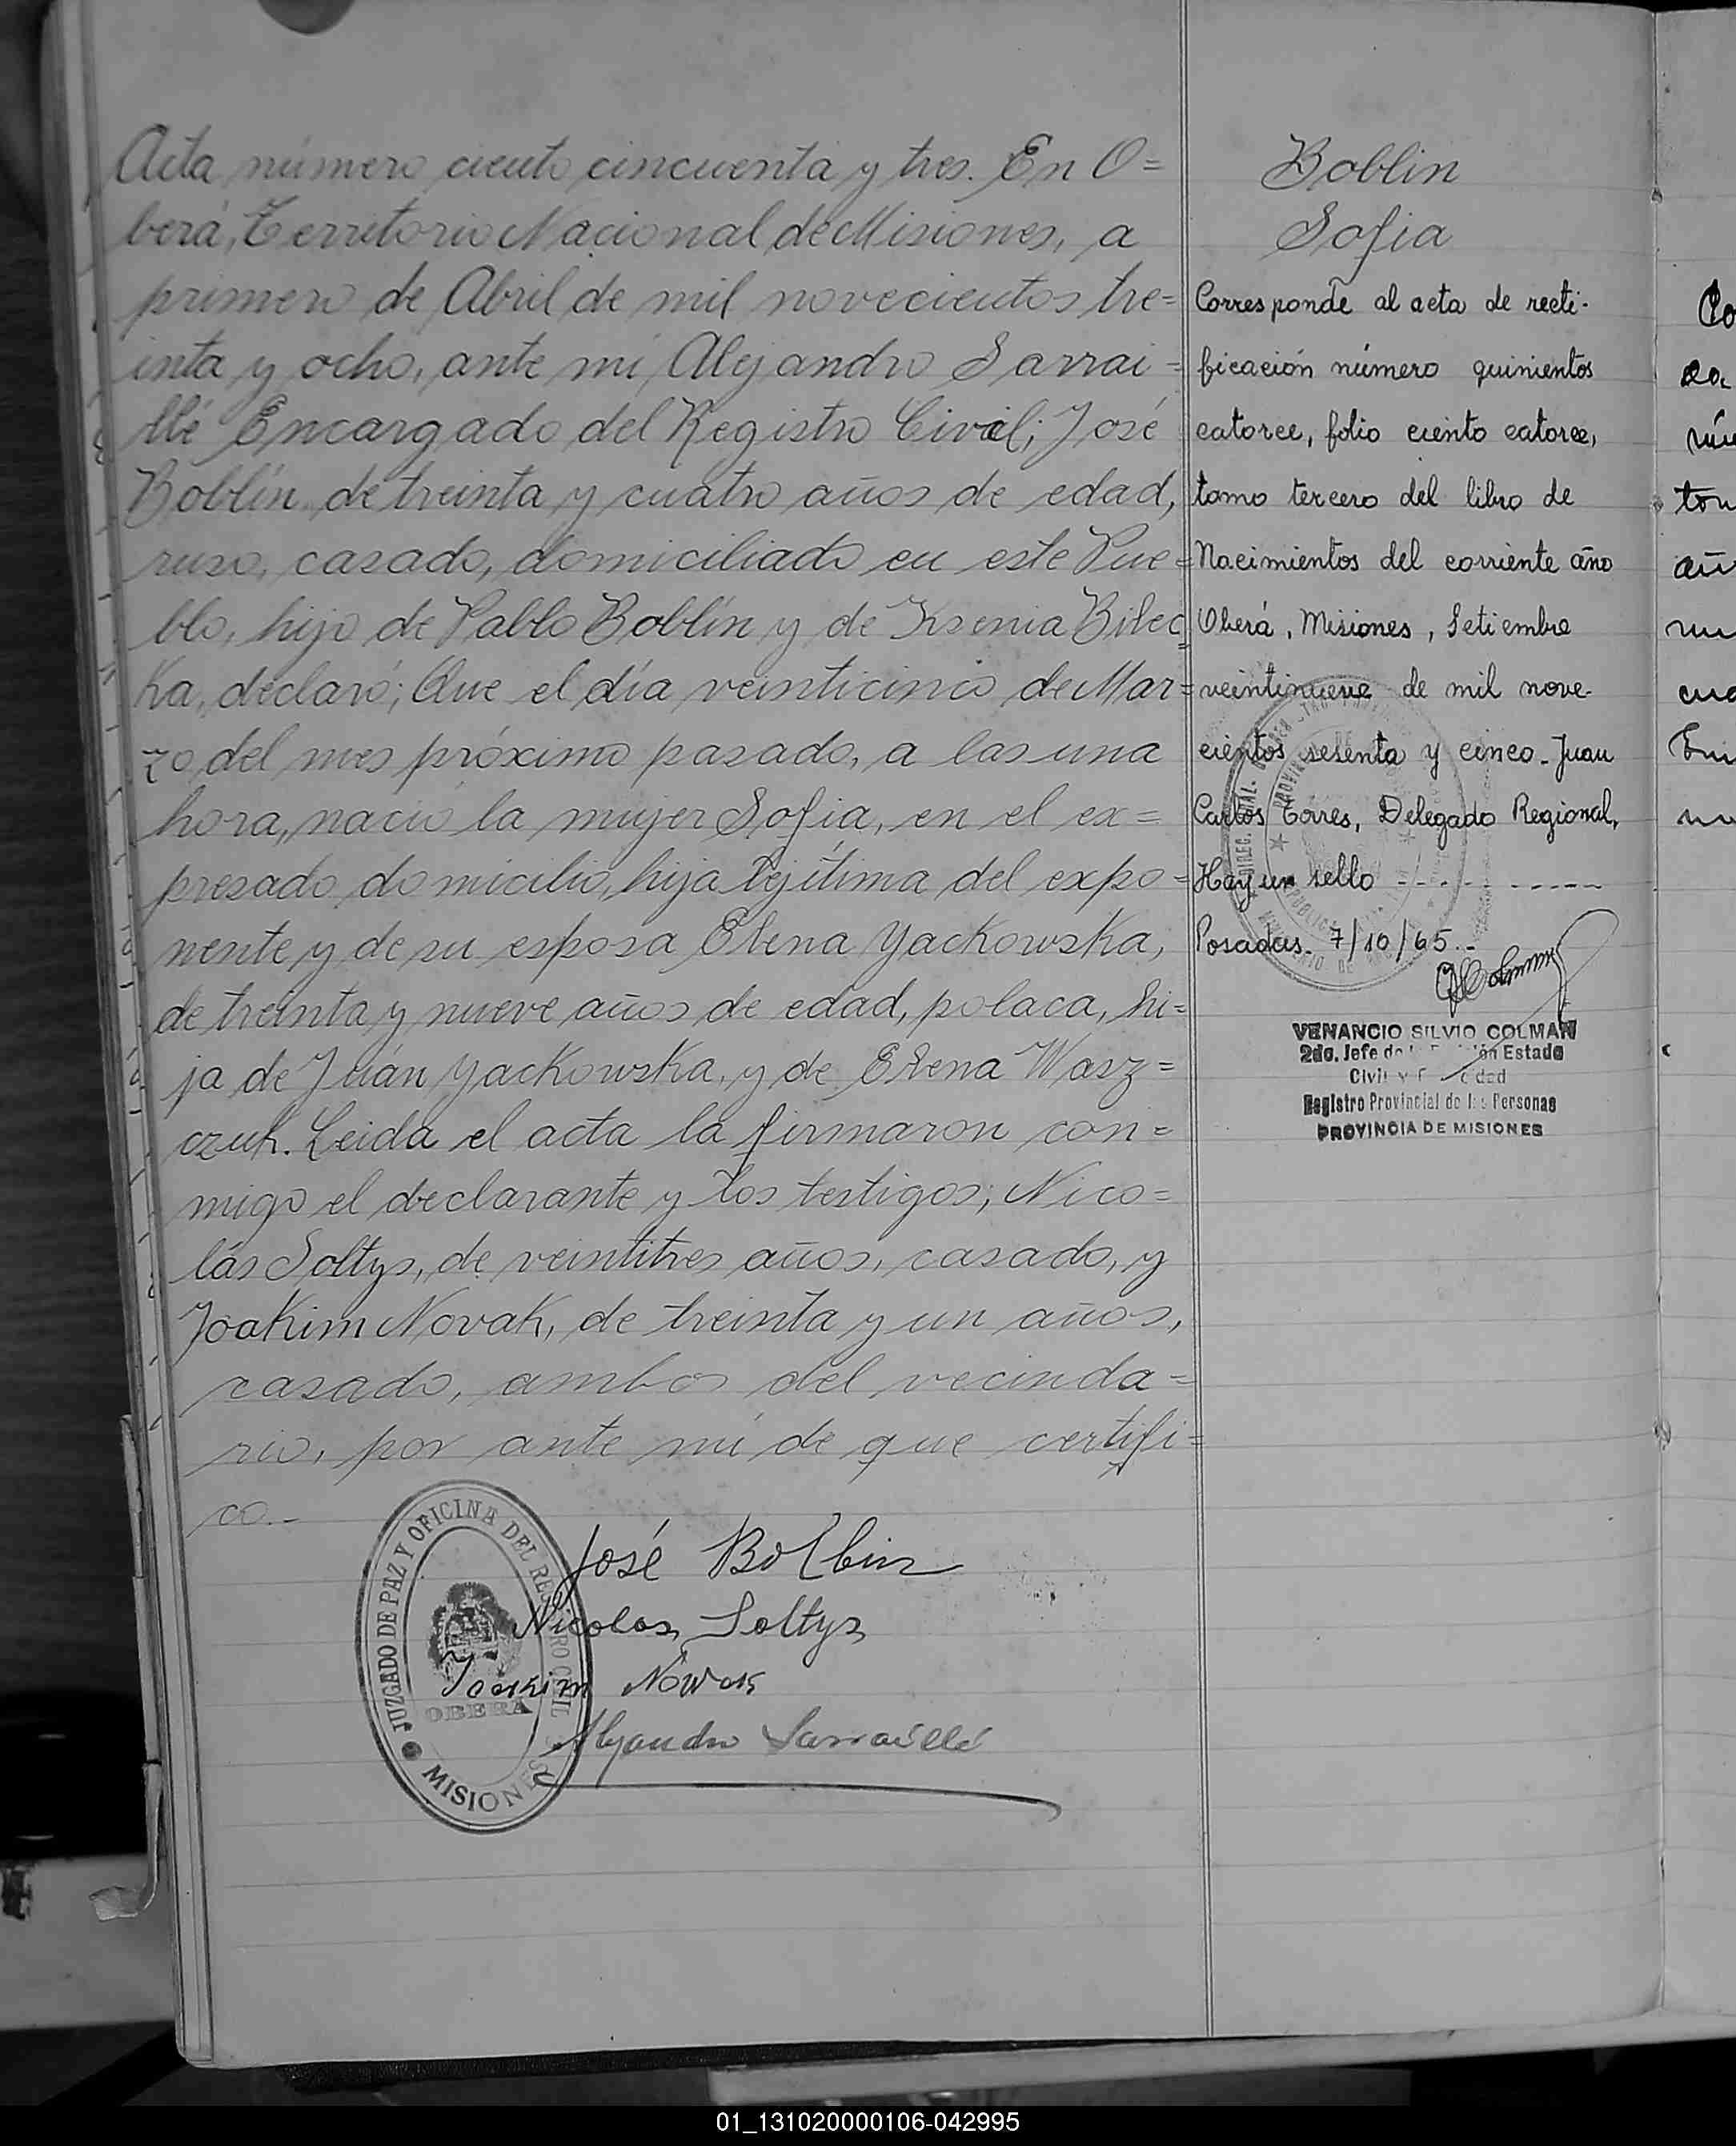 Acta número ciento cincuenta y tres. En O=
berá, Territorio Nacional de Misiones, a
primero de Abril de mil novecientos tre=
inta y ocho, ante mí Alejandro Sarrai=
llé Encargado del Registro Civil; José
Boblín de treinta y cuatro años de edad,
ruso, casado, domiciliado en este Pue=
blo, hijo de Pablo Boblín y de Ksenia Bilec=
Ka, declaró; Que el día veinticinco de Mar=
zo del mes próximo pasado, a las una
hora, nació la mujer Sofía, en el ex=
presado domicilio, hija lejítima del expo=
nente y de su esposa Elena YacKowsKa,
de treinta y nueve años de edad, polaca, hi=
ja de Juán YacKowsKa, y de Elena Wasz=
czuk. Leida el acta la firmaron con=
migo el declarante y los testigos; Nico=
lás Soltys, de veintitres años, casado, y
Joakim Novak, de treinta y un años,
casado, ambos del vecinda=
rio, por ante mí de que certifi=
co.-
José Bolbin
Nicolas Soltys
Joakim Nowak
Alejandro Sarraillé
JUZGADO DE PAZ Y OFICINA DEL REGISTRO CIVIL
OBERA
MISIONES
Boblin
Sofia
Corresponde al acta de recti-
ficación número quinientos
catorce, folio ciento catorce,
tomo tercero del libro de
Nacimientos del corriente año
Oberá, Misiones, Setiembre
veintinueve de mil nove-
cientos sesenta y cinco_ Juan
Carlos Torres, Delegado Regional,
Hay un sello - - - - - - - -
Posadas 7/10/65.-
VENANCIO SILVIO COLMAN
2do. Jefe Estado
Civil y
Registro Provincial de las Personas
PROVINCIA DE MISIONES
01_131020000106-042995